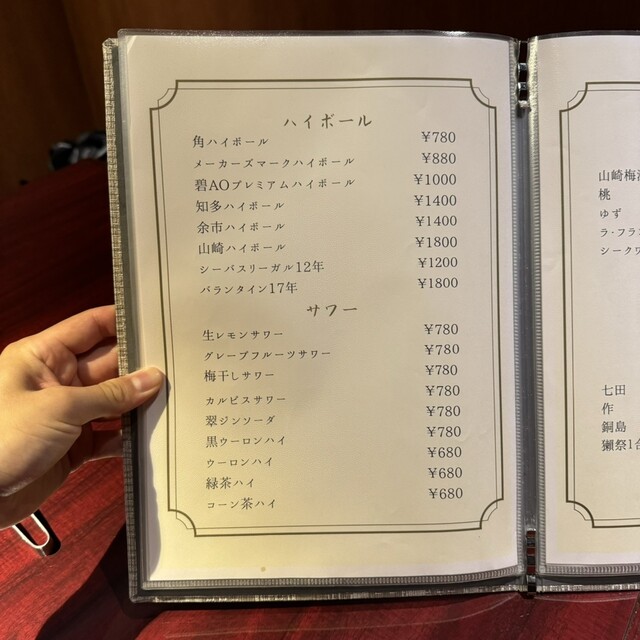 ハイボール
角ハイボール ¥780
メーカーズマークハイボール ¥880
碧AOプレミアムハイボール ¥1000
知多ハイボール ¥1400
余市ハイボール ¥1400
山崎ハイボール ¥1800
シーバスリーガル12年 ¥1200
バランタイン17年 ¥1800
サワー
生レモンサワー ¥780
グレープフルーツサワー ¥780
梅干しサワー ¥780
カルピスサワー ¥780
翠ジンソーダ ¥780
黒ウーロンハイ ¥780
ウーロンハイ ¥680
緑茶ハイ ¥680
コーン茶ハイ ¥680
山崎梅
桃
ゆず
ラ・フラ
シークワ
七田
作
鍋島
獺祭1合